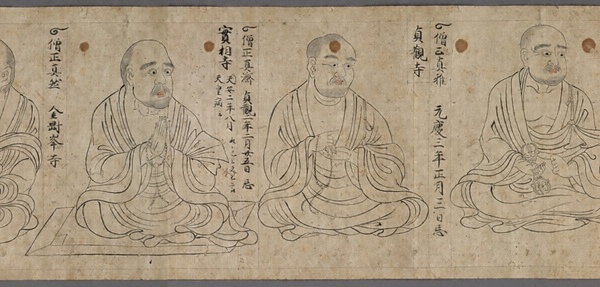 僧正真雅 元慶三年正月三日忌
貞觀寺
僧正真濟 貞觀二年二月廿五日忌
實相寺 天安二年八月
天皇病
僧正真然 金剛峯寺